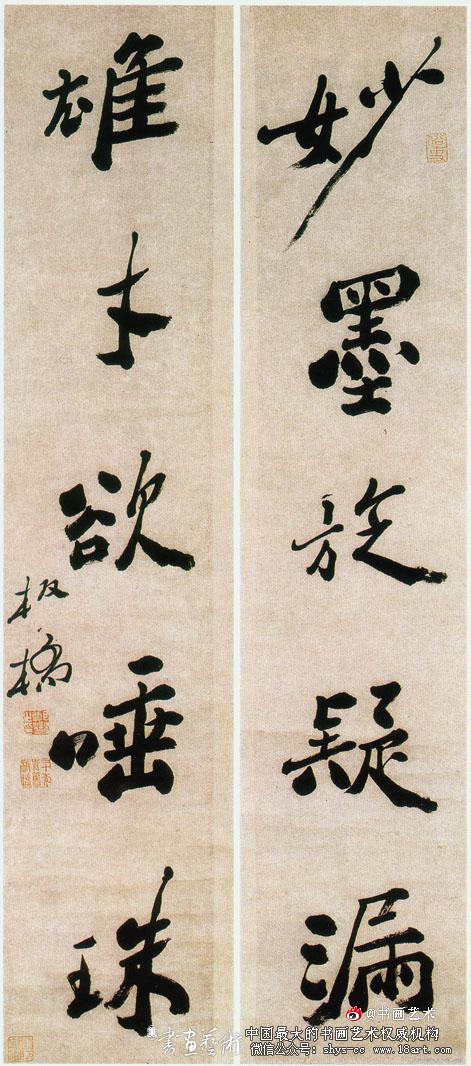 妙墨旋疑漏
雄才欲唾珠
板橋
@书画艺术
書画艺術
中国最大的书画艺术权威机构
微信公众号：shys-cc www.18art.com